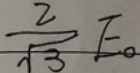 2/√3 E₀